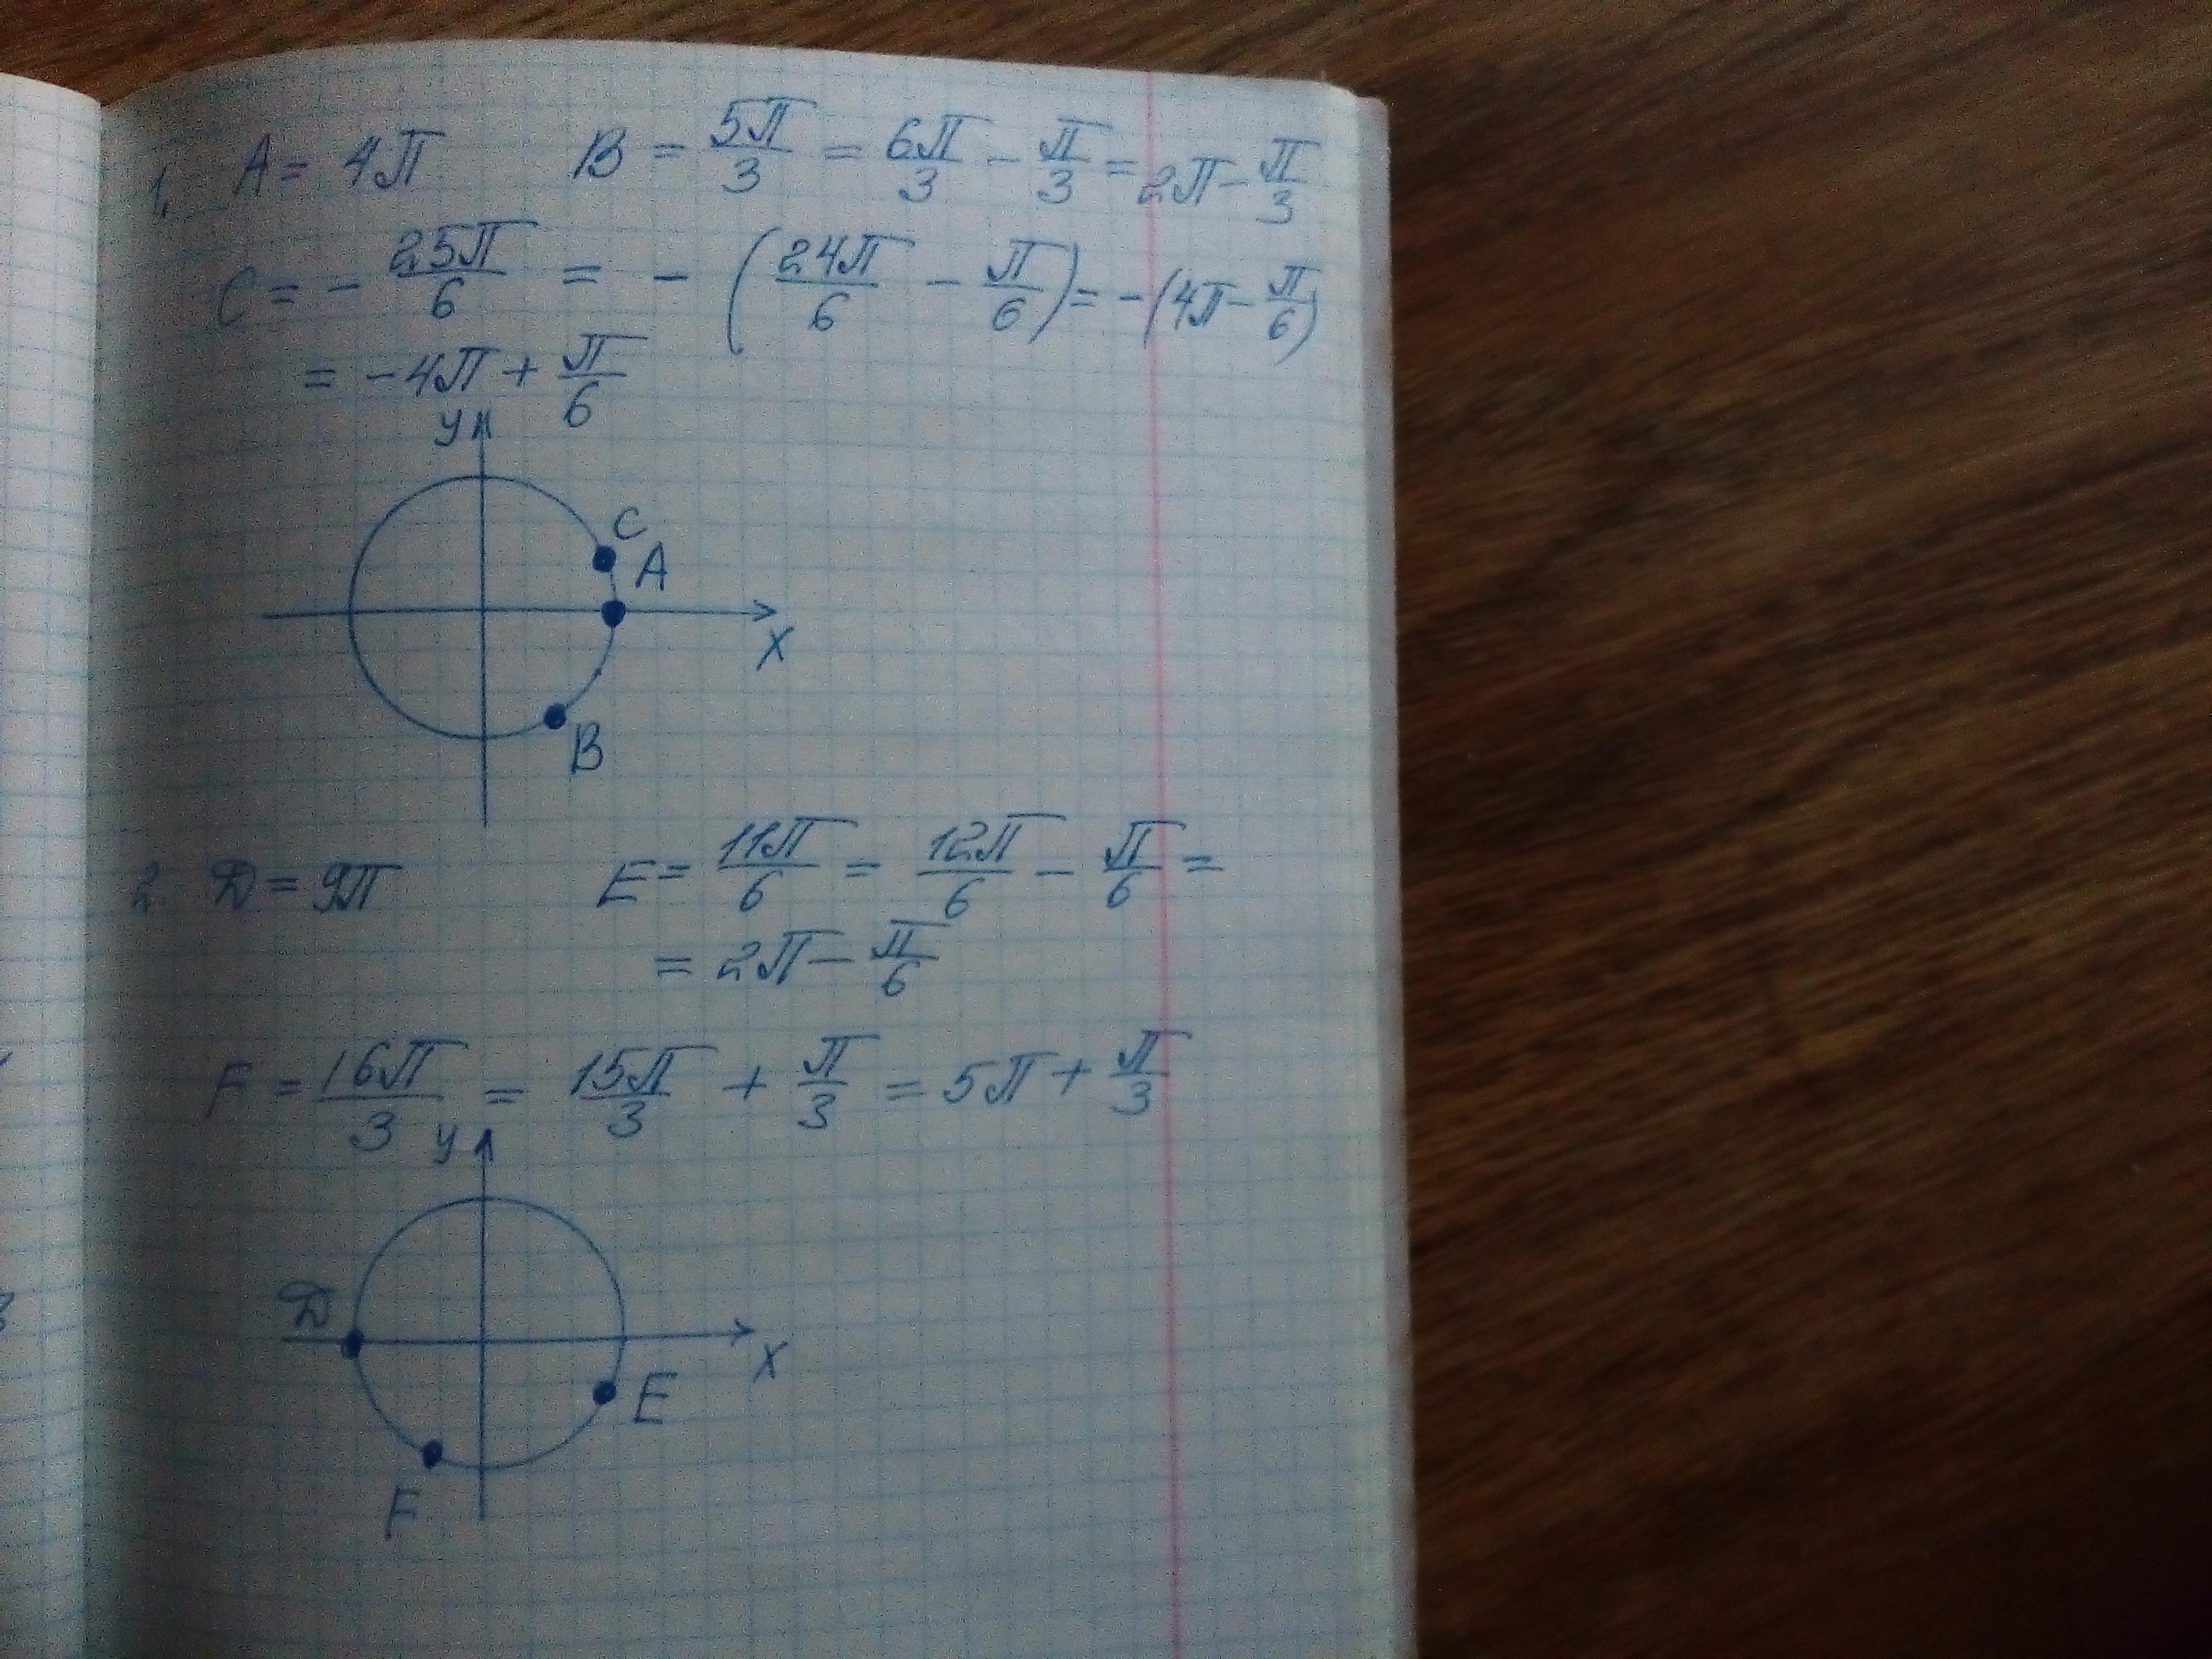 1. A = 4π B = 5π/3 = 6π/3 - π/3 = 2π - π/3
C = - 25π/6 = - (24π/6 - π/6) = -(4π - π/6)
= -4π + π/6
y
C
A
x
B
2. D = 9π E = 11π/6 = 12π/6 - π/6 =
= 2π - π/6
F = 16π/3 = 15π/3 + π/3 = 5π + π/3
y
D
x
E
F